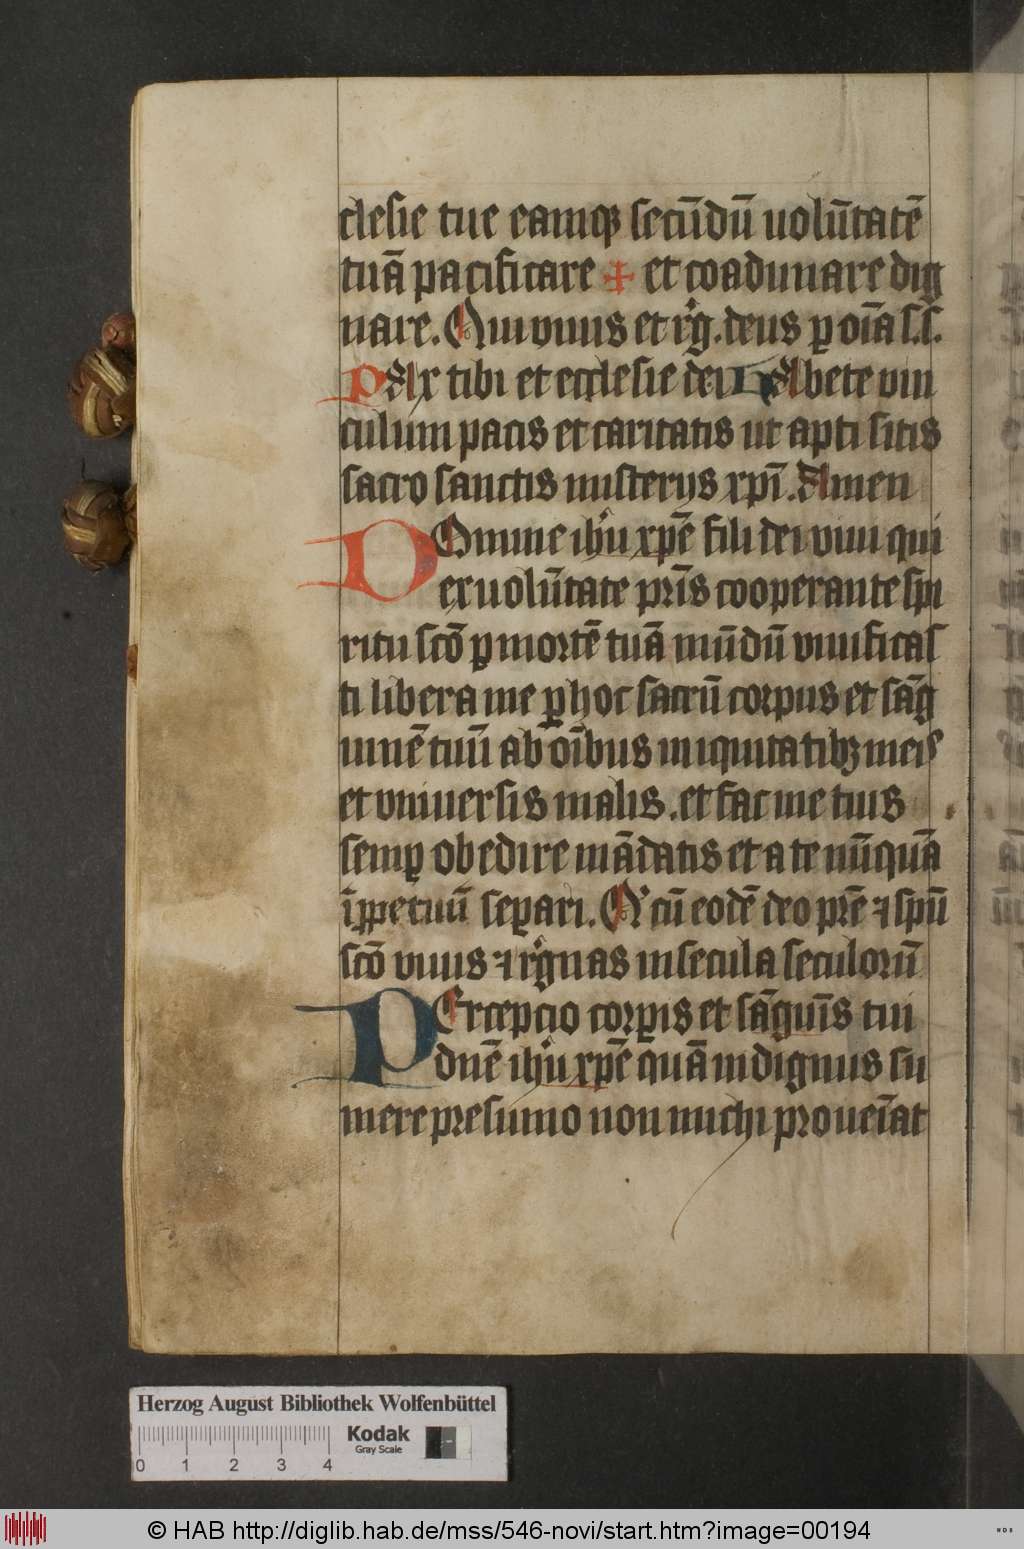 clesie tue eamqꝫ secūdū uolūtatē
tuā pacificare ✠ et coadunare dig
nare. Qui viuis et rͥg. deus ꝑ oīa s.s.
PAx tibi et ecclesie dei HAbete vin
culum pacis et caritatis ut apti sitis
sacro sanctis misterijs xpī. Amen
DOmine ihͥu xpē fili dei viui qui
ex uolūtate prīs cooperante spi
ritu scō ꝑ mortē tuā mūdū viuificas
ti libera me ꝑ hoc sacrū corpus et sāg
uinē tuū ab oībus iniquitatibꝫ meis
et vniuersis malis. et fac me tuis
semꝑ obedire mādatis et a te nūquā
īꝑpetuū seꝑari. Qͥ cū eodē deo prē ⁊ spū
scō viuis ⁊ rͥgnas in secula seculorū
PErcepcio corꝑis et sāguīs tui
dnē ihͥu xpē quā indignus su
mere presumo non michi proueīat
Herzog August Bibliothek Wolfenbüttel
Kodak
Gray Scale
0 1 2 3 4
© HAB http://diglib.hab.de/mss/546-novi/start.htm?image=00194